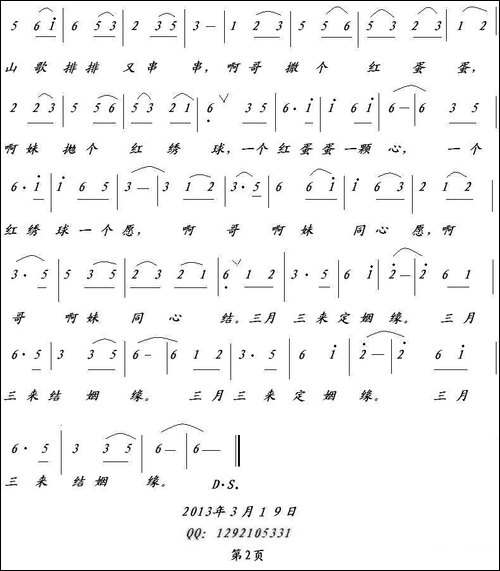 5 6 i | 6 5 3 | 2 3 5 | 3 — | 1 2 3 | 5 5 6 | 5 3 2 3 | 1 2 |
山 歌 排 排 又 串 串，啊 哥 撒 个 红 蛋 蛋，
2 2 3 | 5 5 6 | 5 3 2 1 | 6 3 5 | 6 · i | i 6 i | 6 — | 6 3 5 |
啊 妹 抛 个 红 绣 球，一 个 红 蛋 蛋 一 颗 心，一 个
6 · i | i 6 5 | 3 — | 3 1 2 | 3 · 5 | 6 6 i | i 6 3 | 2 1 2 |
红 绣 球 一 个 愿，啊 哥 啊 妹 同 心 愿，啊
3 · 5 | 5 3 5 | 2 3 2 1 | 6 1 2 | 3 · 5 | 6 i | 2 — | 2 6 1 |
哥 啊 妹 同 心 结。三 月 三 来 定 姻 缘。三 月
6 · 5 | 3 3 5 | 6 — | 6 1 2 | 3 · 5 | 6 i | 2 — | 2 6 i |
三 来 结 姻 缘。三 月 三 来 定 姻 缘。三 月
6 · 5 | 3 3 5 | 6 — | 6 — ‖
三 来 结 姻 缘。 D·S.
2013年3月19日
QQ: 1292105331
第2页